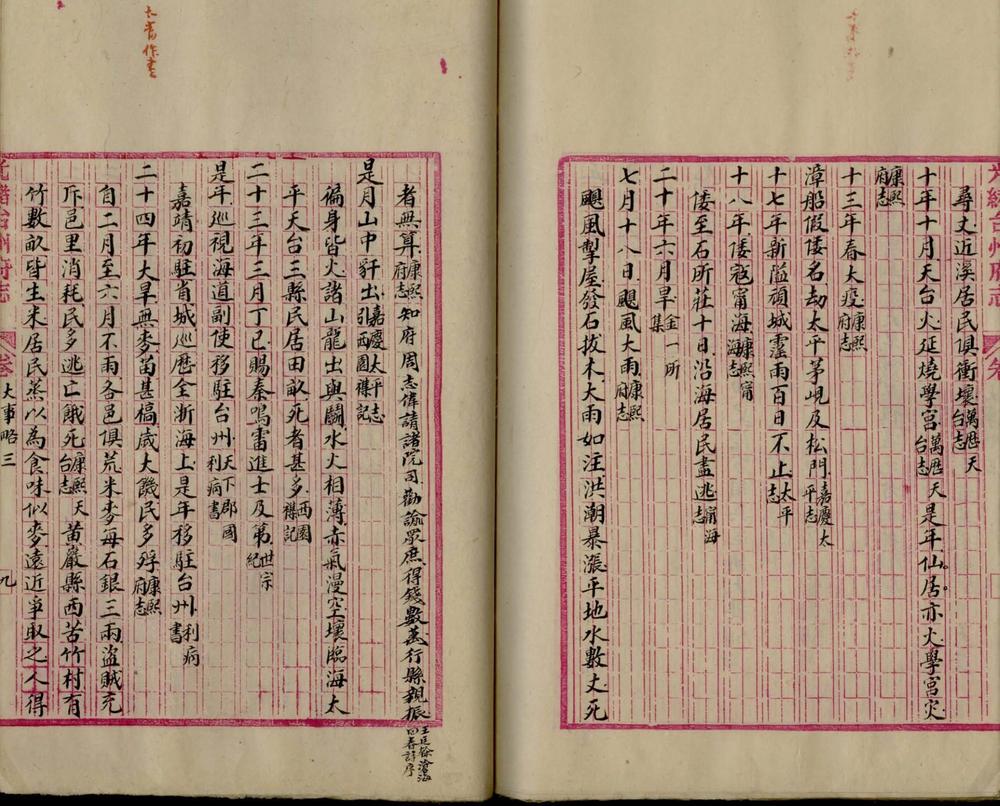 尋丈近溪居民俱衝壞萬歷天台志
十年十月天台火延燒學宮萬歷天台志是年仙居亦火學宮灾
康熙府志
十三年春大疫康熙府志
漳船假倭名劫太平茅峴及松門嘉慶太平志
十七年新隘頑城霪雨百日不止太平志
十八年倭寇甯海康熙甯海志
倭至石所莊十日沿海居民盡逃甯海志
二十年六月旱金一所集
七月十八日颶風大雨康熙府志
颶風掣屋發石拔木大雨如注洪潮暴漲平地水數丈死
者無算康熙府志知府周志偉請諸院司勸諭眾庶得錢數萬行縣親振王廷榦滄海回春詩序
是月山中豻出嘉慶太平志引西園襍記
徧身皆火諸山龍出與鬬水火相薄赤氣漫空壞臨海太
平天台三縣民居田畝死者甚多西園襍記
二十三年三月丁巳賜秦鳴雷進士及第世宗紀
是年巡視海道副使移駐台州天下郡國利病書
嘉靖初駐省城巡歷全浙海上是年移駐台州利病書
二十四年大旱無麥苗甚槁歲大饑民多殍康熙府志
自二月至六月不雨各邑俱荒米麥每石銀三兩盜賊充
斥邑里消耗民多逃亡餓死康熙天台志黃巖縣西苦竹村有
竹數畝皆生米居民蒸以為食味似麥遠近爭取之人得
光緒台州府志
卷
大事略三
九